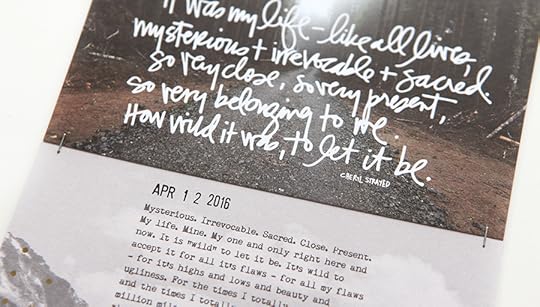 It was my life - like all lives,
mysterious + irrevocable + sacred.
so very close, so very present,
so very belonging to me.
How wild it was, to let it be.
CHERYL STRAYED
APR 12 2016
Mysterious. Irrevocable. Sacred. Close. Present.
My life. Mine. My one and only right here and
now. It is "wild" to let it be. It's wild to
accept it for all it's flaws - for all my flaws
- for it's highs and lows and beauty and
ugliness. For the times I totally
and the times I totally
million